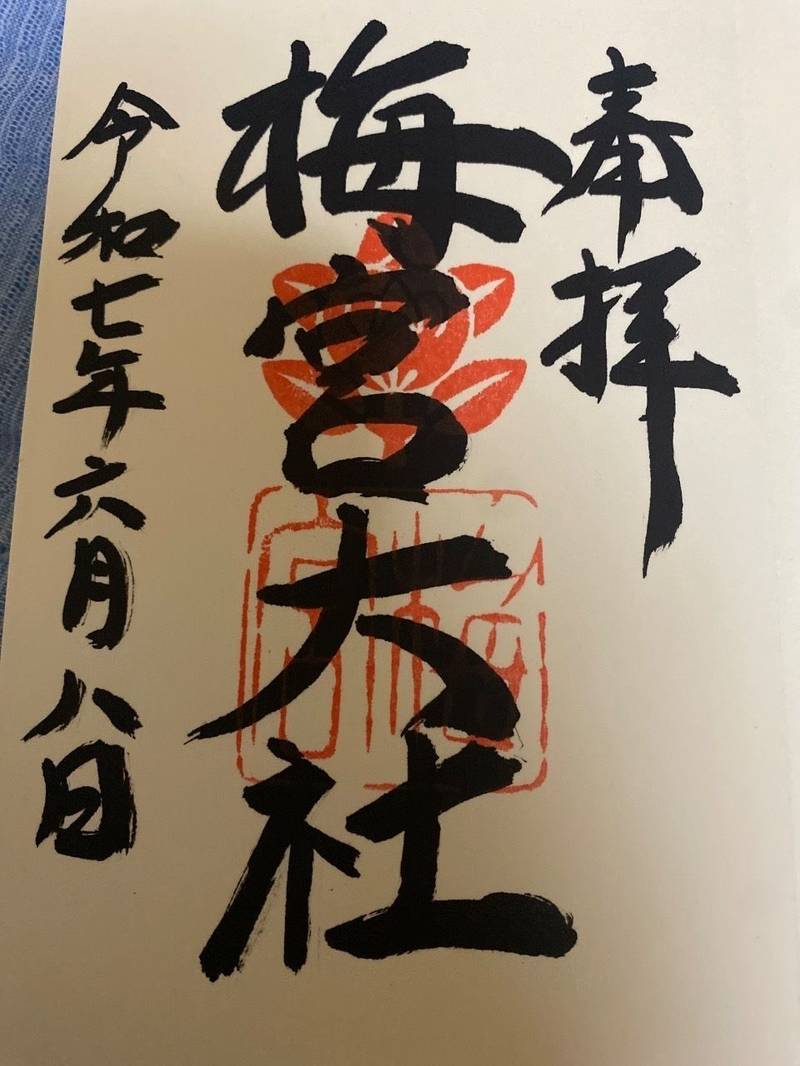 奉拝
梅宮大社
令和七年六月八日